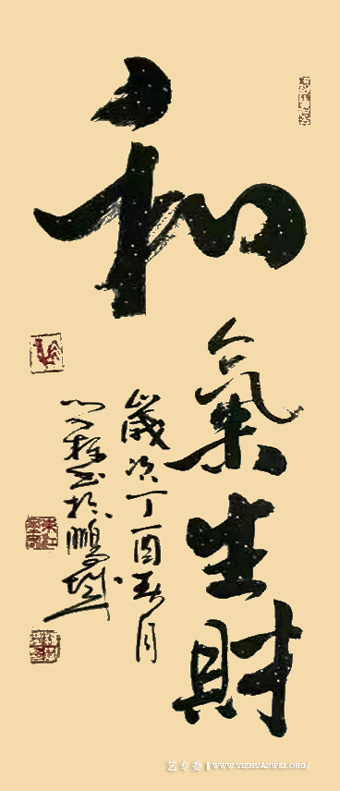 和
氣生財
歲次丁酉秋月
書於鵬城
艺专委 | WWW.YIZHUANWEI.ORG/